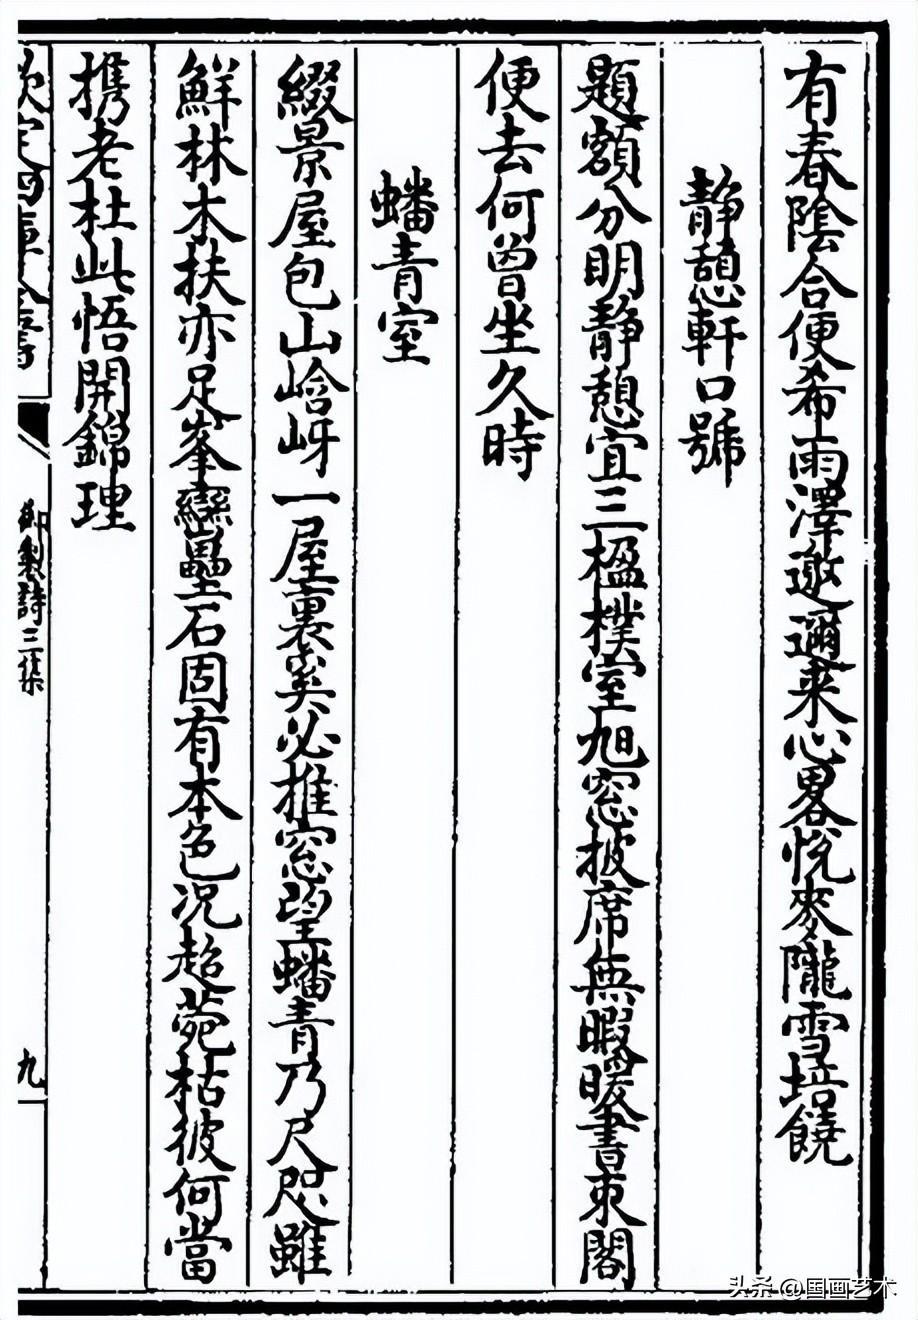 有春陰合便希雨澤邀邇来心畧悅麥隴雪培饒
靜憩軒口號
題額分明靜憩宜三楹樸室旭窓披席無暇暖書束閣
便去何曾坐久時
蟠青室
綴景屋包山峆岈一屋裏奚必推窓望蟠青乃尺咫雖
鮮林木扶亦足峯巒壘石固有本色況超菀枯彼何當
携老杜此悟開錦理
欽定四庫全書
御製詩三集
九
头条 @国画艺术